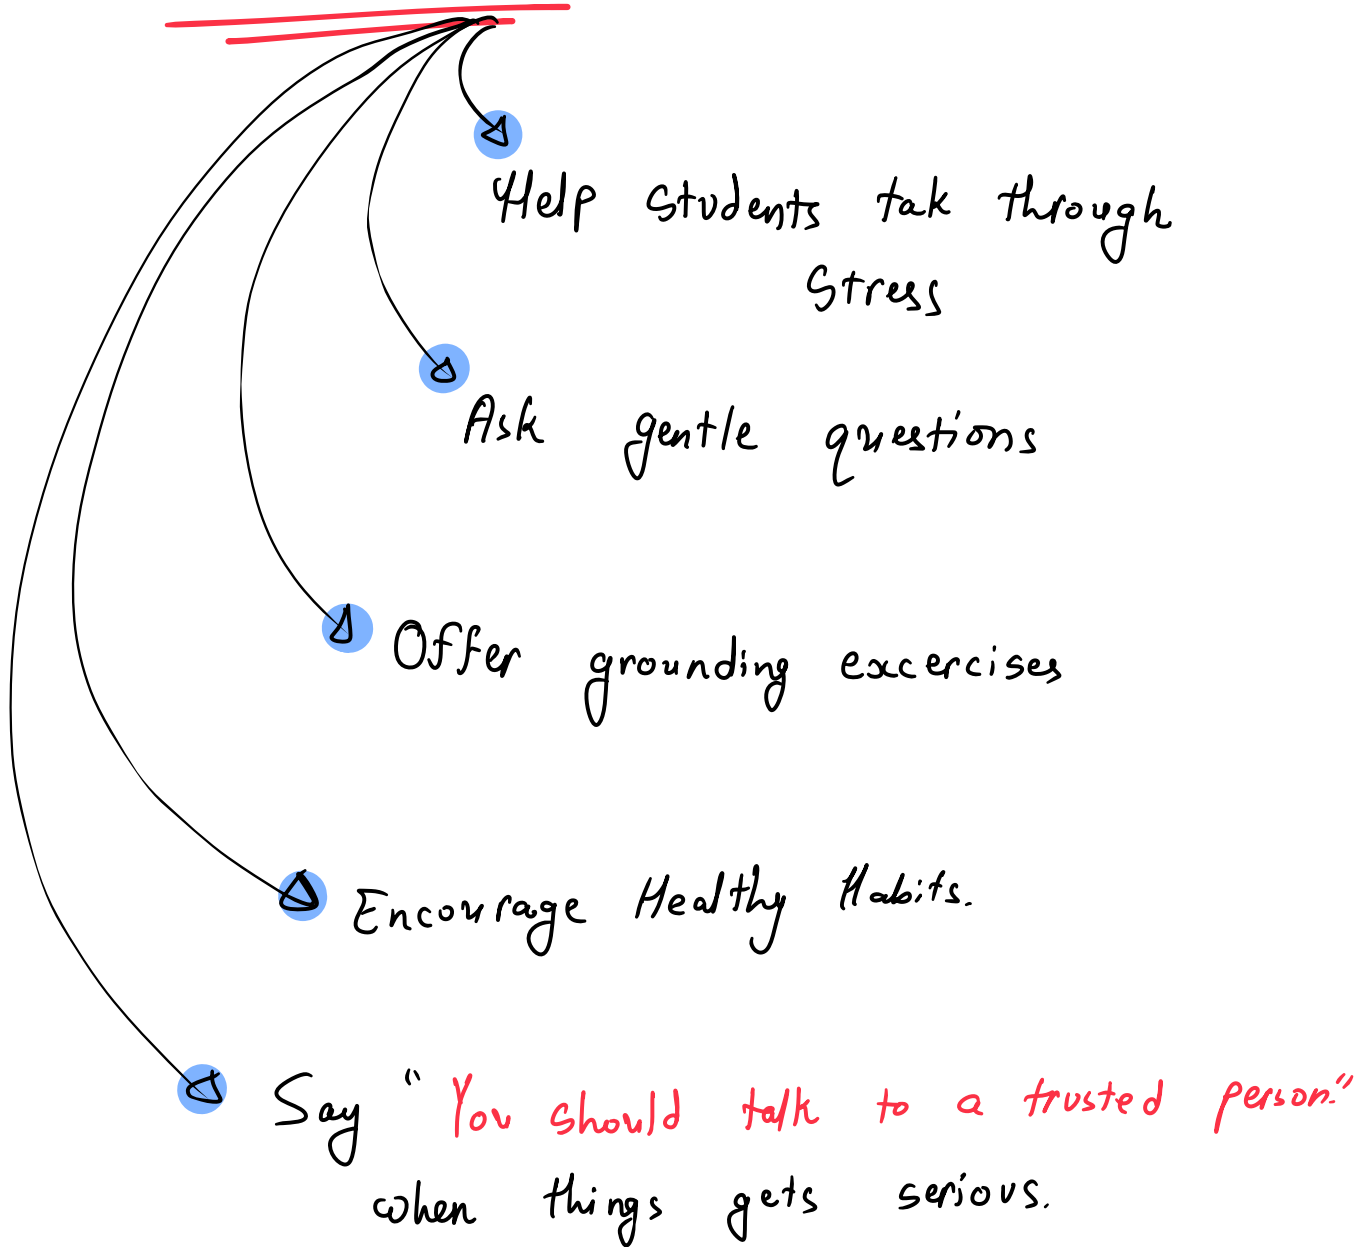 Help students tak through
Stress
Ask gentle questions
Offer grounding excercises
Encourage Healthy Habits.
Say "You should talk to a trusted person."
when things gets serious.